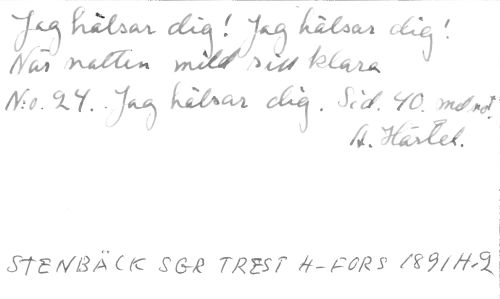 Jag hälsar dig! Jag hälsar dig!
När natten mild sin klara
N:o. 24. Jag hälsar dig. Sid. 40. med not.
A. Härtel.
STENBÄCK SGR TREST H-FORS 1891 H.2